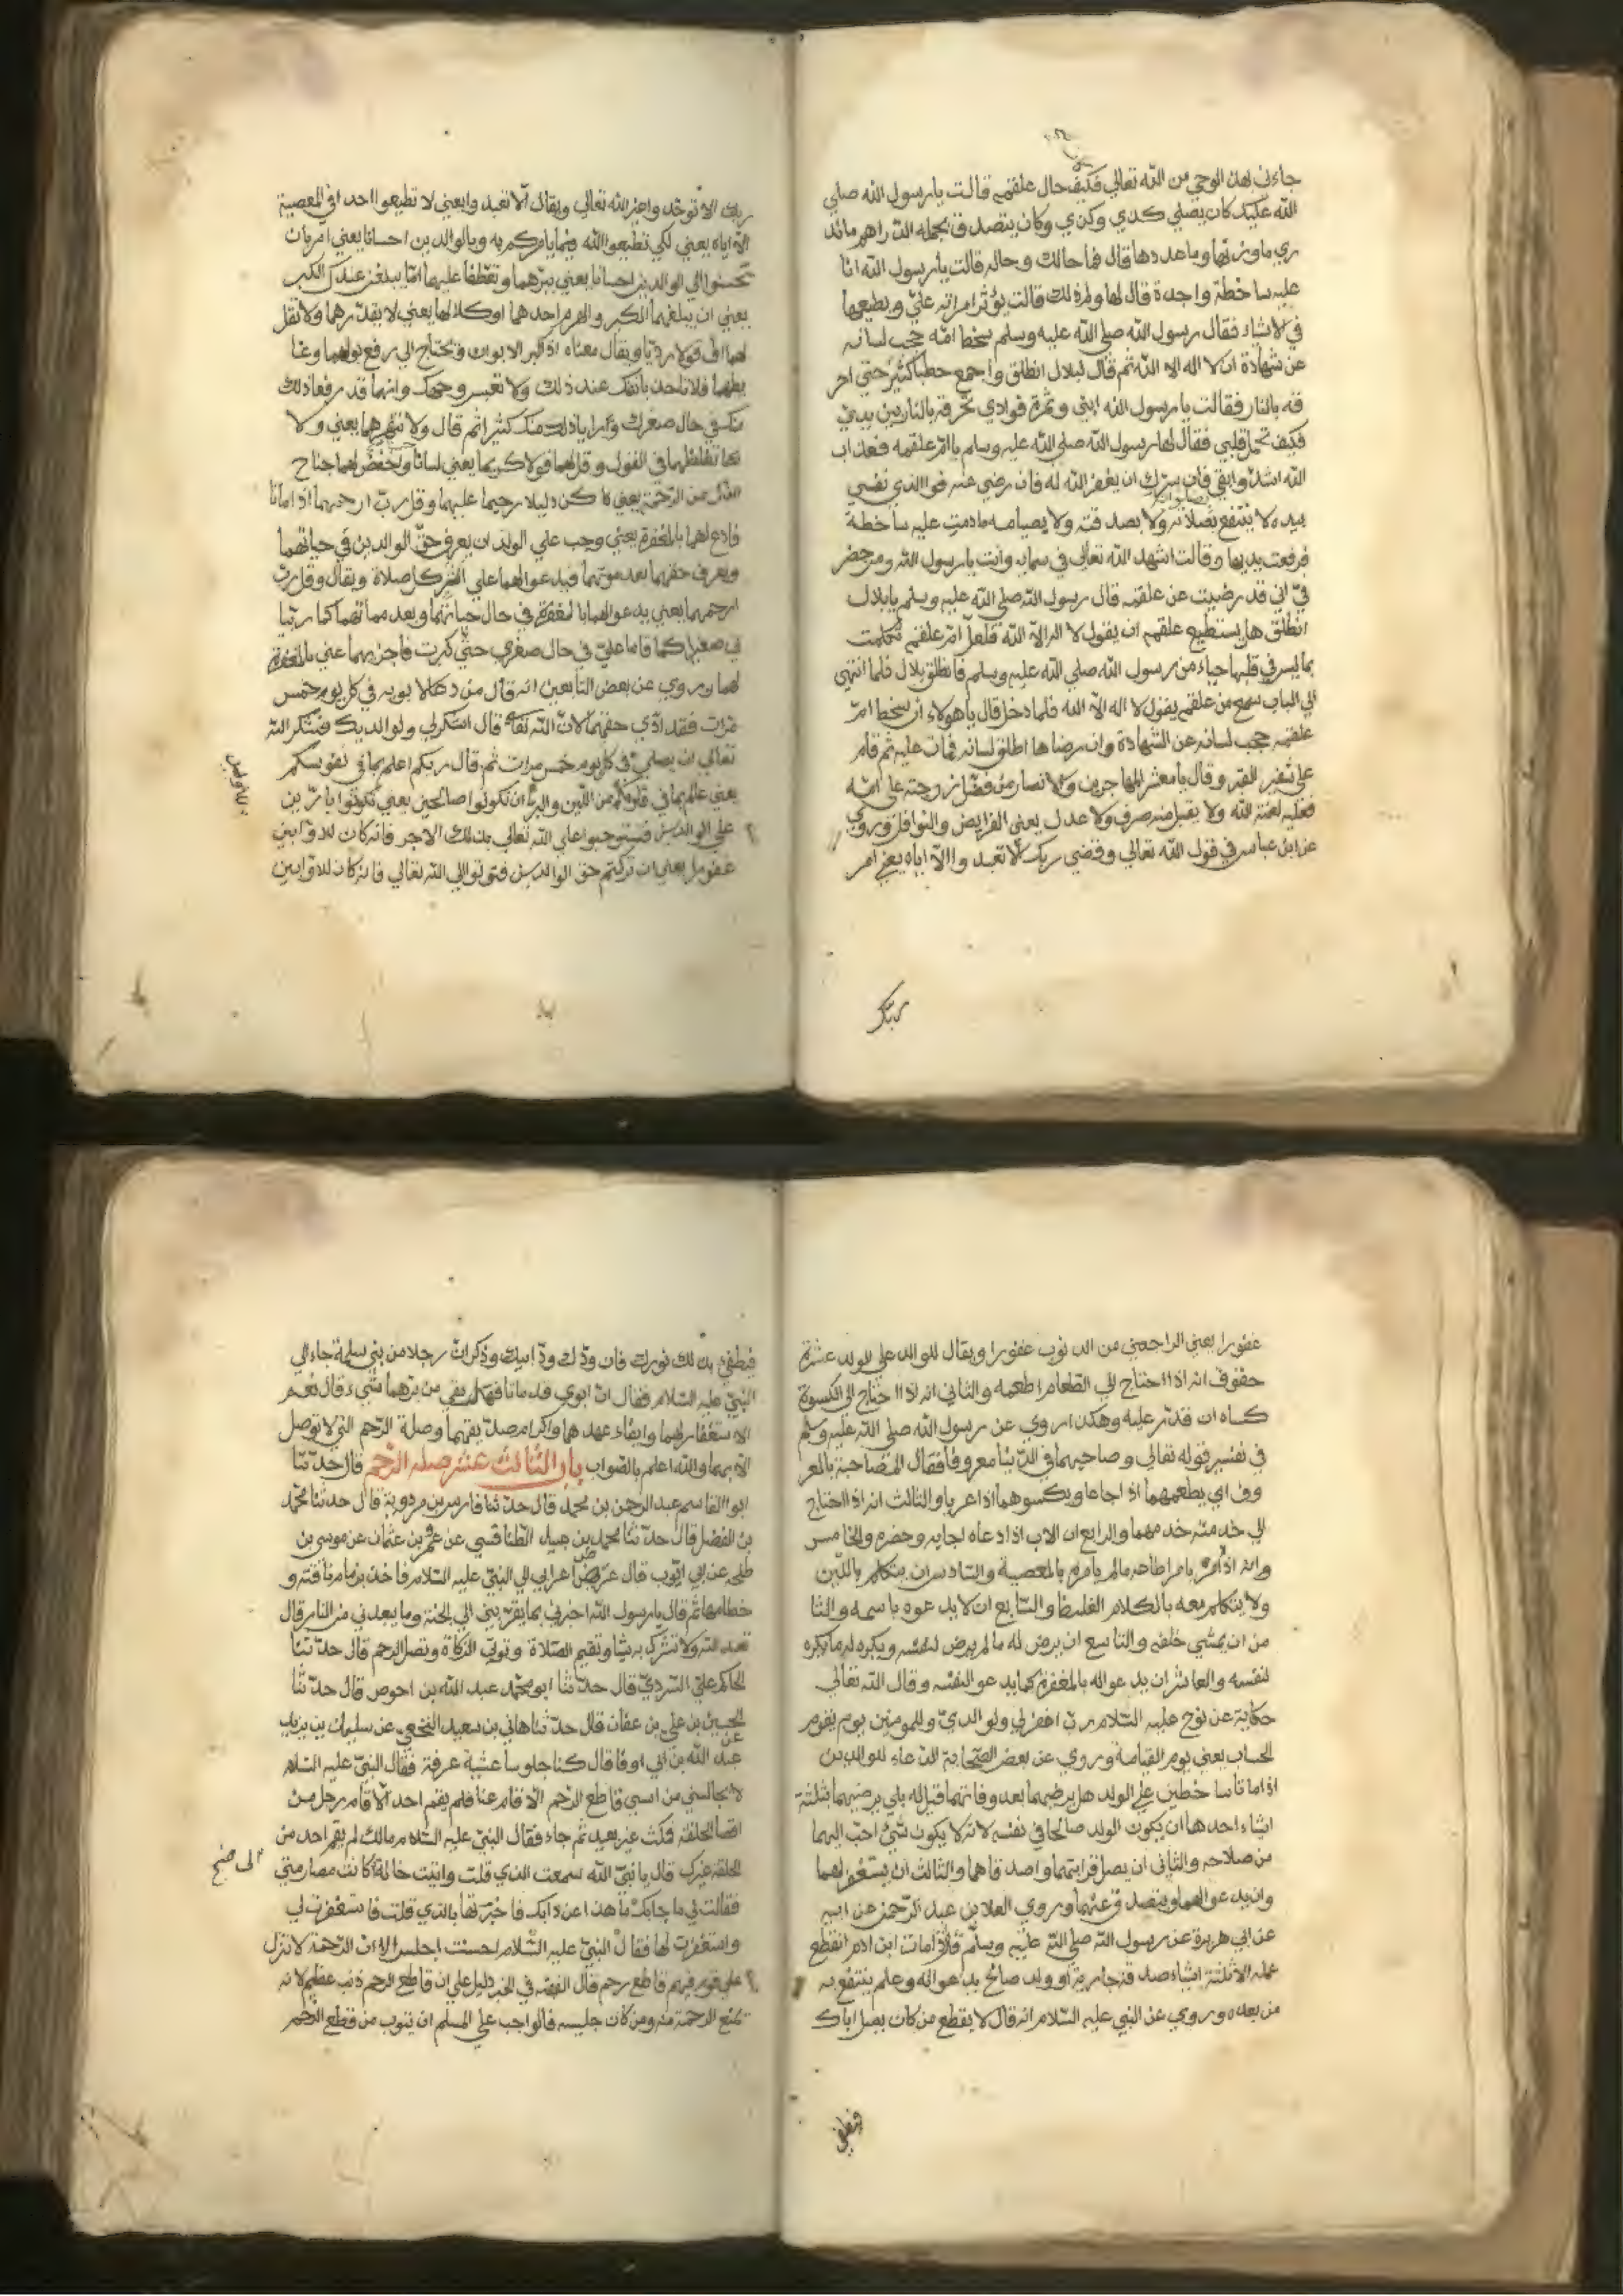 جاءني بهذا الوحي من الله تعالى فكيف حال علقمة قالت يا رسول الله صلي
الله عليك كان يصلي كذي وكذي وكان يتصدق بجملة الدراهم ماندري
ري ما وزنها وما عددها قال فما حالك وحاله قالت يا رسول الله انا
عليه ساخطة واجدة قال لها ولم ذلك قالت يؤثر امراته عليّ ويطيعها
في الاشياء فقال رسول الله صلي الله عليه وسلم سخط امّه حجب لسانه
عن شهادة ان لا اله الا الله ثم قال لبلال انطلق واجمع حطبا كثيرا حتى احر
قه بالنار فقالت يا رسول الله ابني وثمرة فوادي تحرقه بالنار بين يديّ
فكيف تحمل قلبي فقال لها رسول الله صلي الله عليه وسلم يا امّ علقمه فعذاب
الله اشدّ وابقي فان يسرّك ان يغفر الله له فان رضي عنه فوالذي نفسي
بيده لا ينتفع بصلاته ولا بصدقته ولا بصيامه ما دمت عليه ساخطة
فرفعت يديها وقالت اشهد الله تعالى في سمايه وانت يا رسول الله ومن حضر
نيّ اني قد رضيت عن علقمة قال رسول الله صلي الله عليه وسلم يا بلال
انطلق هل يستطيع علقمه ان يقول لا اله الا الله فلعلّ امّ علقمه تكلمت
بما ليس في قلبها حياء من رسول الله صلي الله عليه وسلم فانطلق بلال فلما انتهي
الي الباب سمع من علقمه يقول لا اله الا الله فلما دخل قال يا هولاء ان سخط امّ
علقمه حجب لسانه عن الشهادة وان رضاها اطلق لسانه فمات عليه ثم قام
على شفير القبر وقال يا معشر المهاجرين والانصار من فضّل زوجته على امّه
فعليه لعنة الله ولا يقبل منه صرف ولا عدل يعني الفرايض والنوافل وروي
عن ابن عباس في قول الله تعالي وقضي ربك الّا تعبدوا الّا اياه يعني امر
ربّك
ربك الا توحّدوا غير الله تعالي ويقال الّا تعبدوا يعني لا تطيعوا احدا في المعصية
الا اياه يعني لكي تطيعوا الله فيما يامركم به وبالوالدين احسانا يعني امر بان
تحسنوا الي الوالدين احسانا يعني ببرّهما وتعطّفا عليهما امّا يبلغنّ عندك الكبر
يعني ان يبلغهما الكبر والهرم احدهما او كلاهما يعني لا يقذّرهما ولا تقل
لهما افّ قولا رديّا ويقال معناه اذا كبر الابوان وتحتاج الي رفع بولهما وغا
يطهما فلا تاخذ بانفك عند ذلك ولا تعبس وجهك وانهما قد رفعا ذلك
منك في حال صغرك ورأيا ذلك منك كثيرا ثم قال ولا تنهرهما يعني ولا
تغلظهما في القول وقل لهما قولا كريما يعني لسانا واخفض لهما جناح
الذّل من الرّحمة يعني كن ذليلا رحيما عليهما وقل ربّ ارحمهما اذا ماتا
فادع لهما بالمغفرة يعني وجب علي الولد ان يعرف حقّ الوالدين في حياتهما
ويعرف حقهما بعد موتهما فيدعوا لهما علي اثر كل صلاة ويقال وقل ربّ
ارحمهما يعني يدعوا لهما بالمغفرة في حال حياتهما وبعد مماتهما كما ربّيا
ني صغيرا كما قاما عليّ في حال صغري حتّي كبرت فاجزهما عني بالمغفرة
لهما وروي عن بعض التابعين انه قال من دعا لابويه في كل يوم خمس
مرّات فقد ادّي حقهما لانّ الله تعالى قال اشكر لي ولوالديك فشكر الله
تعالي ان يصلي في كل يوم خمس مرات ثم قال ربكم اعلم بما في نفوسكم
يعني عالم بما في قلوبكم من اللّين والبرّ ان تكونوا صالحين يعني تكونوا بارّين
علي الوالدين فتستوجبوا على الله تعالي بذلك الاجر فانه كان للاوّابين
للاوّابين
غفورا يعني ان تركتم حق الوالدين فتوبوا الي الله تعالي فانه كان للاوّابين
غفورا يعني الراجعين من الذنوب غفورا ويقال للوالد علي الولد عشرة
حقوق انه اذا احتاج الي الطعام اطعمه والثاني انه اذا احتاج الى الكسوة
كساه ان قدر عليه وهكذا روي عن رسول الله صلي الله عليه وسلم
في تفسير قوله تعالي وصاحبهما في الدّنيا معروفا فقال المصاحبة بالمعر
وف اي يطعمهما اذا جاعا ويكسوهما اذا عريا والثالث انه اذا احتاج
الي خدمته خدمهما والرابع ان الاب اذا دعاه لجابه وحضره والخامس
وانه اذا امره بامر اطاعه ما لم يامره بالمعصية والسّادس ان يتكلم باللّين
ولا يتكلم معه بالكلام الغليظ والسّابع ان لا يدعوه باسمه والثا
من ان يمشي خلفه والتاسع ان يرضي له ما لم يرض لنفسه ويكره له ما يكره
لنفسه والعاشر ان يدعوا له بالمغفرة كما يدعوا لنفسه وقال الله تعالي
حكاية عن نوح عليه السّلام ربّ اغفر لي ولوالديّ وللمومنين يوم يقوم
الحساب يعني يوم القيامة وروي عن بعض الصّحابة الدّعاء للوالدين
اذا ماتا ساخطين على الولد هل يرضيهما بعد وفاتهما قيل له بلي يرضيهما بثلثة
اشياء احدها ان يكون الولد صالحا في نفسه لانه لا يكون شيء احبّ اليهما
من صلاحه والثاني ان يصل قرابتهما واصدقاهما والثالث ان يستغفر لهما
وان يدعوا لهما ويتصدق عنهما وروي العلا بن عبد الرّحمن عن ابيه
عن ابي هريرة عن رسول الله صلي الله عليه وسلّم قال اذا مات ابن ادم انقطع
عمله الا ثلثة اشياء صدقة جارية او ولد صالح يدعوا له وعلم ينتفع به
من بعده وروي عن النبي عليه السّلام انه قال لا يقطع من كان يصل اباك
فيطفي
فيطفي بذلك نورك فان ودّك ودّ ابيك وذكر انّ رجلا من بني سلمة جاء الي
النبيّ عليه السّلام فقال انّ ابويّ قد ماتا فهل بقي من برّهما شيء قال نعم
الاستغفار لهما وايفاء عهدهما واكرام صديقهما وصلة الرّحم التي لا توصل
الا بهما والله اعلم بالصّواب باب الثّالث عشر صلة الرّحم قال حدّثنا
ابوا القاسم عبد الرحمن بن محمد قال حدّثنا فارس بن مردوية قال حدثنا محمّد
بن الفضل قال حدّثنا محمد بن عبيد الطنافسي عن عمرو بن عثمان عن موسي بن
طلحه عن ابي ايّوب قال عرض اعرابي الي النبيّ عليه السّلام فاخذ بزمام ناقته و
خطامها ثم قال يا رسول الله اخبرني بما يقرّبني الي الجنة وما يبعدني من النار قال
تعبد الله ولا تشرك به شيا وتقيم الصّلاة وتوتي الزكاة وتصل الرحم قال حدّثنا
الحاكم علي السّرديّ قال حدّثنا ابو محمّد عبد الله بن احوص قال حدّثنا
الحسين بن علي بن عفان قال حدّثنا هاني بن سعيد النخعي عن سليمان بن يزيد
عن
عبد الله بن ابي اوفا قال كنا جلوسا عشية عرفة فقال النبيّ عليه السّلام
لا يجالسني من امسي قاطع الرّحم الّا قام عنا فلم يقم احد الّا قام رجل من
اقصا الحلقة فمكث غير بعيد ثم جاء فقال النبيّ عليه السّلام مالك لم يقم احد من
الحلقة غيرك قال يا نبيّ الله سمعت الذي قلت واتيت خالة كانت مصارمتي
فقالت لي ما جابك ما هذا عن دابك فاخبرتها بالذي قلت فاستغفرت لي
واستغفرت لها فقال النبيّ عليه السّلام احسنت اجلس الا انّ الرّحمة لا تنزل
علي قوم فيهم قاطع رحم قال الفقيه في الخبر دليل علي ان قاطع الرحم ذنب عظيم لانه
تمنع الرحمة منه ومن كان جليسه فالواجب علي المسلم ان يتوب من قطع الرّحم